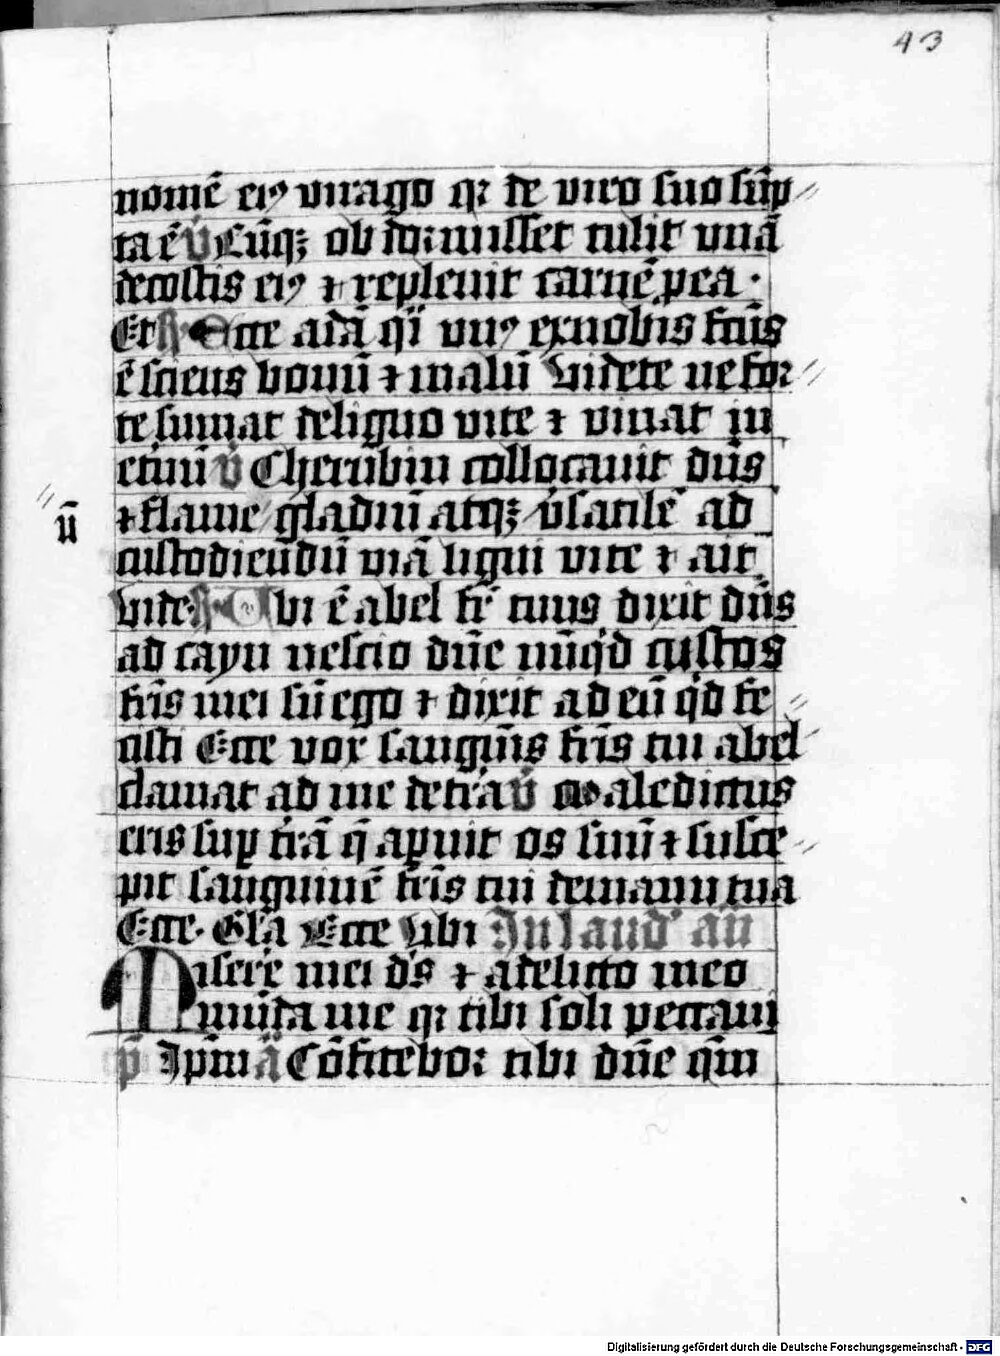 43
nomē eiꝰ virago qꝛ de viro suo sūp
ta ē v̄ Cūqꝫ obdormisset tulit vnā
de costis eiꝰ ⁊ repleuit carnē p ea ·
Et R Ecce adā q̄i vnꝰ ex nobis fc̄us
ē sciens bonū ⁊ malū Videte ne for
te sumat de ligno vite ⁊ viuat in
et̄nū v̄ Cherubin collocauit dn̄s
⁊ flāme gladiū atqꝫ v̾satilē ad
ū
custodiendū viā ligni vite ⁊ ait
vide R Vbi ē abel fr̄ tuus dixit dn̄s
ad cayn nescio dn̄e nūqd̄ custos
fr̄is mei sū ego ⁊ dixit ad eū qd̄ fe
cisti Ecce vox sanguīs fr̄is tui abel
clamat ad me de t̄ra v̄ Maledictus
eris suꝑ t̄rā q̄ aperuit os suū ⁊ susce
pit sanguinē fr̄is tui de manu tua
Ecce · Gl̄a Ecce Vbi In laud̾ an̄
Miserē mei ds̄ ⁊ a delicto meo
mūda me qꝛ tibi soli peccaui
p̄ Ip̄m ā Cōfitebor tibi dn̄e qm̄
Digitalisierung gefördert durch die Deutsche Forschungsgemeinschaft - DFG